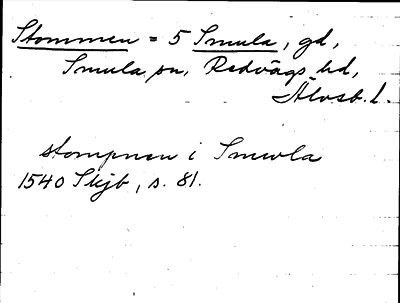 Stommen = 5 Smula, gd,
Smula sn, Redvägs hd,
Älvsb. l.
stompnen i Smwla
1540 Skjb, s. 81.